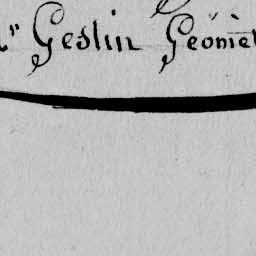 Geslin Géomèt